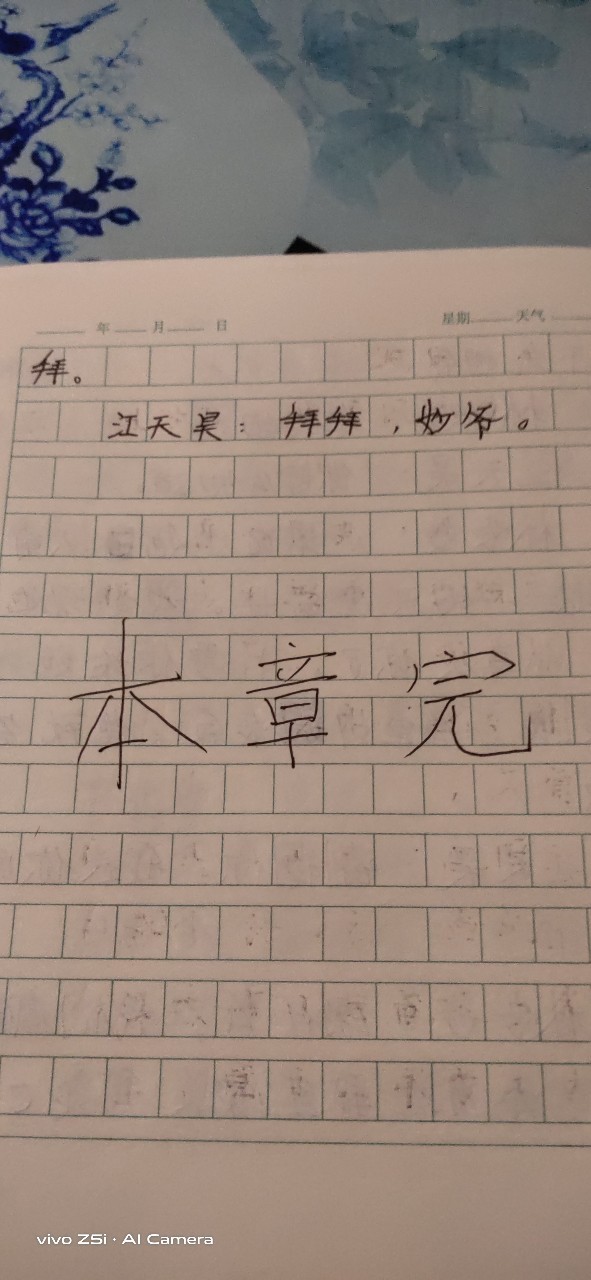 年 月 日 星期 天气
拜。
江天昊：拜拜，妙爷。
本章完
vivo Z5i · AI Camera